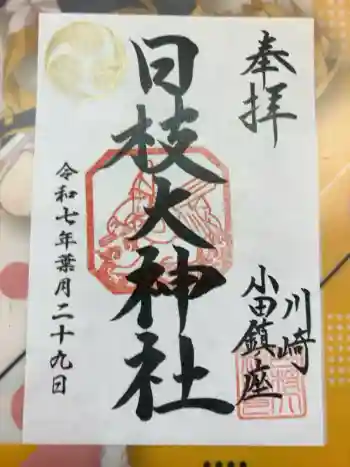 奉拝
川崎
小田鎮座
日枝大神社
令和七年葉月二十九日